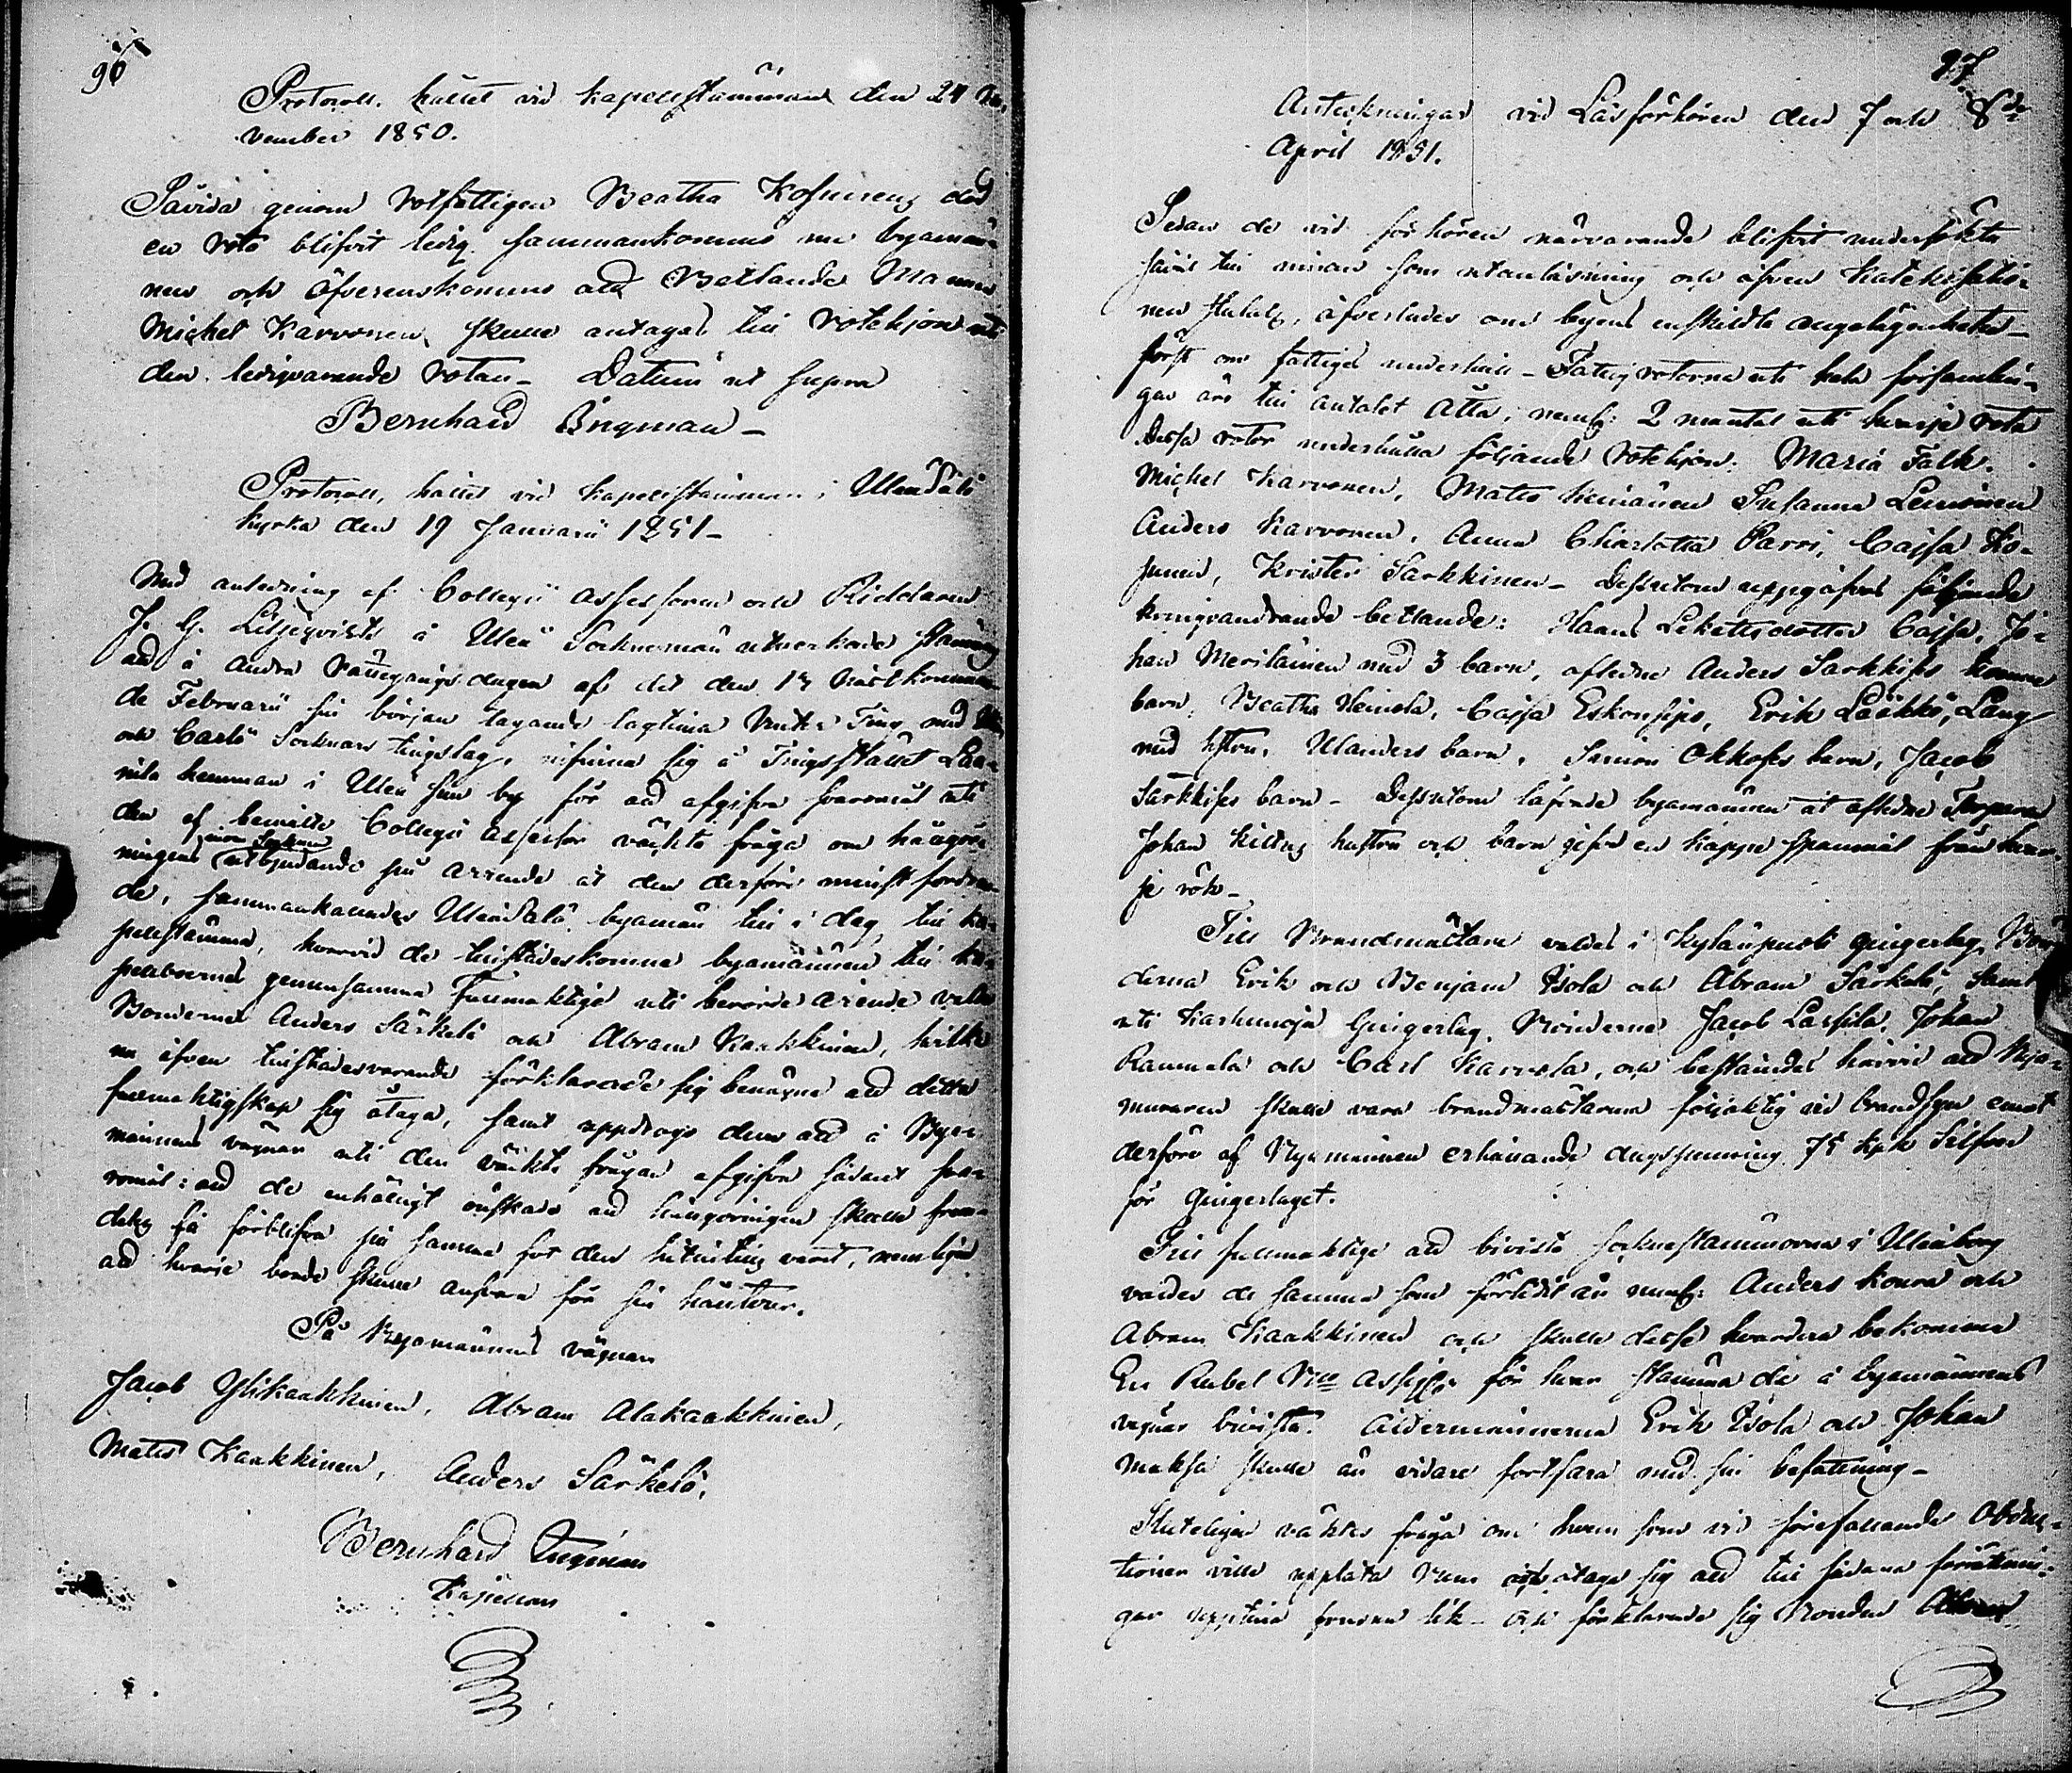 96
Protocoll, hållet vid kapellstämman den 24 No-
vember 1850.
Såvida genom rotfattigen Beatha Kosunens död
en rota blifvit ledig, sammankommo nu byamän-
nen och öfverenskommo att Betlande Mannen
Michel Karvonen, skulle antagas till rotehjon uti
den ledigvarande rotan_ Datum ut supra
Bernhard Ingman_
Protocoll, hållet vid kapellstämman i Uleåsalo
kyrka den 19 Januarii 1851_
Med anledning af Collegii assessoren och Riddaren
J. G. Liljeqvists å Uleå Socknemän utverkade stämning
att å andra Rättegångs dagen af det den 13 nästkomman-
de Februarii sin början tagande lagtima Vinter Ting med Uleå
och Carlö Socknars tingslag, infinna sig å Tingsstället Laa-
nila hemman i Uleå  by för att afgifva svaromål uti
den af bemälte Collegii assessor väckte fråga om hållgör-
inom Socknen
ningens utbjudande på arrende åt den derföre minst fordran-
de, sammankallades Uleåsalo byamän till i dag, till ka-
pellstämma, hvarvid de tillstädeskomne byamännen till ka-
pellboernes gemensamma Fullmäktige uti berörde ärende valde
Bönderne Anders Särkelä och Abram Kaakkinen, hvilka
nu äfven tillstädesvarande förklarade sig benägne att detta
fullmäktigskap sig åtaga, samt uppdrogs dem att å Bya-
männens vägnar uti den väckta frågan afgifva sådant sva-
romål: att de enhälligt önskade att hållgörningen skulle fram-
deles få förblifva på samma fot den hittills varit, nemligen
att hvarje bonde skulle ansvara för sin hålltur.
På Byamännens vägnar
Jacob Ylikaakkinen, Abram Alakaakkinen,
Mats Kaakkinen, Anders Särkelä,
Bernhard Ingman
Kapellan
97
Anteckningar vid Läsförhören den 7 och 8de
April 1851.
Sedan de vid förhören närvarande blifvit undersökte
såväl till innan som utanläsning och äfven Katekisatio-
nen slutats, öfverlades om byens enskildta angelägenheter_
först om fattiges underhåll_ Fattigrotorne uti hela församlin-
gen äro till antalet Åtta, neml: 2 mantal uti hvarje rota
Dessa rotor underhålla följande rotehjon: Maria Falk,
Michel Karvonen, Mats Heinänen Susanna Leinonen
Anders Karvonen, Anna Charlotta Parvi, Cajsa Ko-
sunen, Krister Sarkkinen_ Dessutom uppgåfvos följande
kringvandrande betlande: Hans Lekatts dotter Cajsa, Jo-
han Meriläinen med 3 barn, afledne Anders Sarkkises  
barn, Beatha Heinola, Cajsa Eskons, Erik Läckkö, Lång
med hstru, Ulanders barn, Simon Okkoses barn, Jacob
Sarkkises barn_ Dessutom lofvade byamännen åt aflidne Torparen
Johan  hustru och barn gifva en kappe spanmål från hvar-
je rök_
Till Brandmästare valdes i Kylänpuoli gingerlag, Bön-
derna Erik och Benjam Isola och Abram Särkelä, samt
uti Karhunoja Gingerlag, Bönderne Jacob Lassila, Johan
Rannela och Carl Karvola, och bestämdes härvid att Bya-
muraren skulle vara brandmästarene följaktig vid brandsyn emot
derföre af Byamännen erhållande dagspenning 75 kpk Silfver
för Gingerlaget.
Till fullmäktige att bivista sockenstämmorna i Uleåborg
valdes de samma som förlidit år neml: Anders Koura och
Abram Kaakkinen och skulle desse hvardera bekomma
En Rubel Bco Assigner för hvar stämma de å byamännens
vägnar bivista. Åldermännerna Erik Isola och Johan
Maksa skulle än vidare fortfara med sin befattning_
Slutligen väktes fråga om hvem som vid förefallande Obduc-
tioner ville upplåta rum och åtaga sig att till sådana förrättnin-
gar upptina frusna lik_ och förklarade sig Bonden Abram